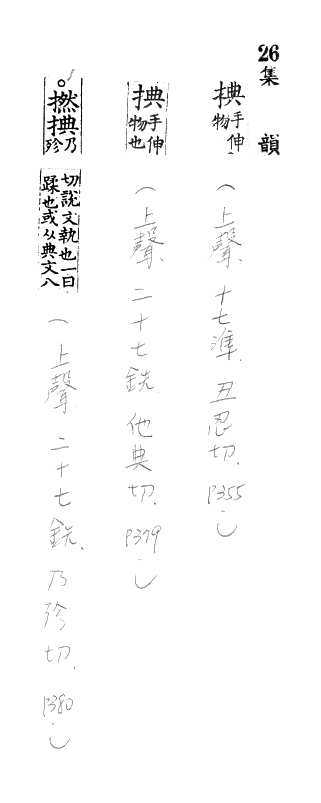 26 集韻
㧂手伸物（上聲、十七準、丑忍切、P355。）
㧂手伸物也（上聲、二十七銑、他典切、P379。）
。撚㧂乃殄切說文執也一曰蹂也或从典文八（上聲、二十七銑、乃殄切、P380。）